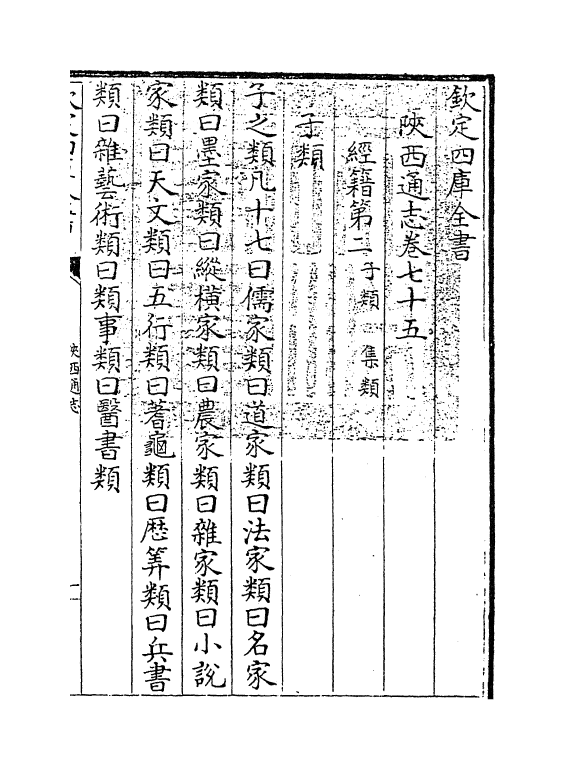 欽定四庫全書
陜西通志卷七十五
經籍第二子類 集類
子類
子之類凡十七曰儒家類曰道家類曰法家類曰名家
類曰墨家類曰縱橫家類曰農家類曰雜家類曰小說
家類曰天文類曰五行類曰蓍龜類曰厯筭類曰兵書
類曰雜藝術類曰類事類曰醫書類
陜西通志
一